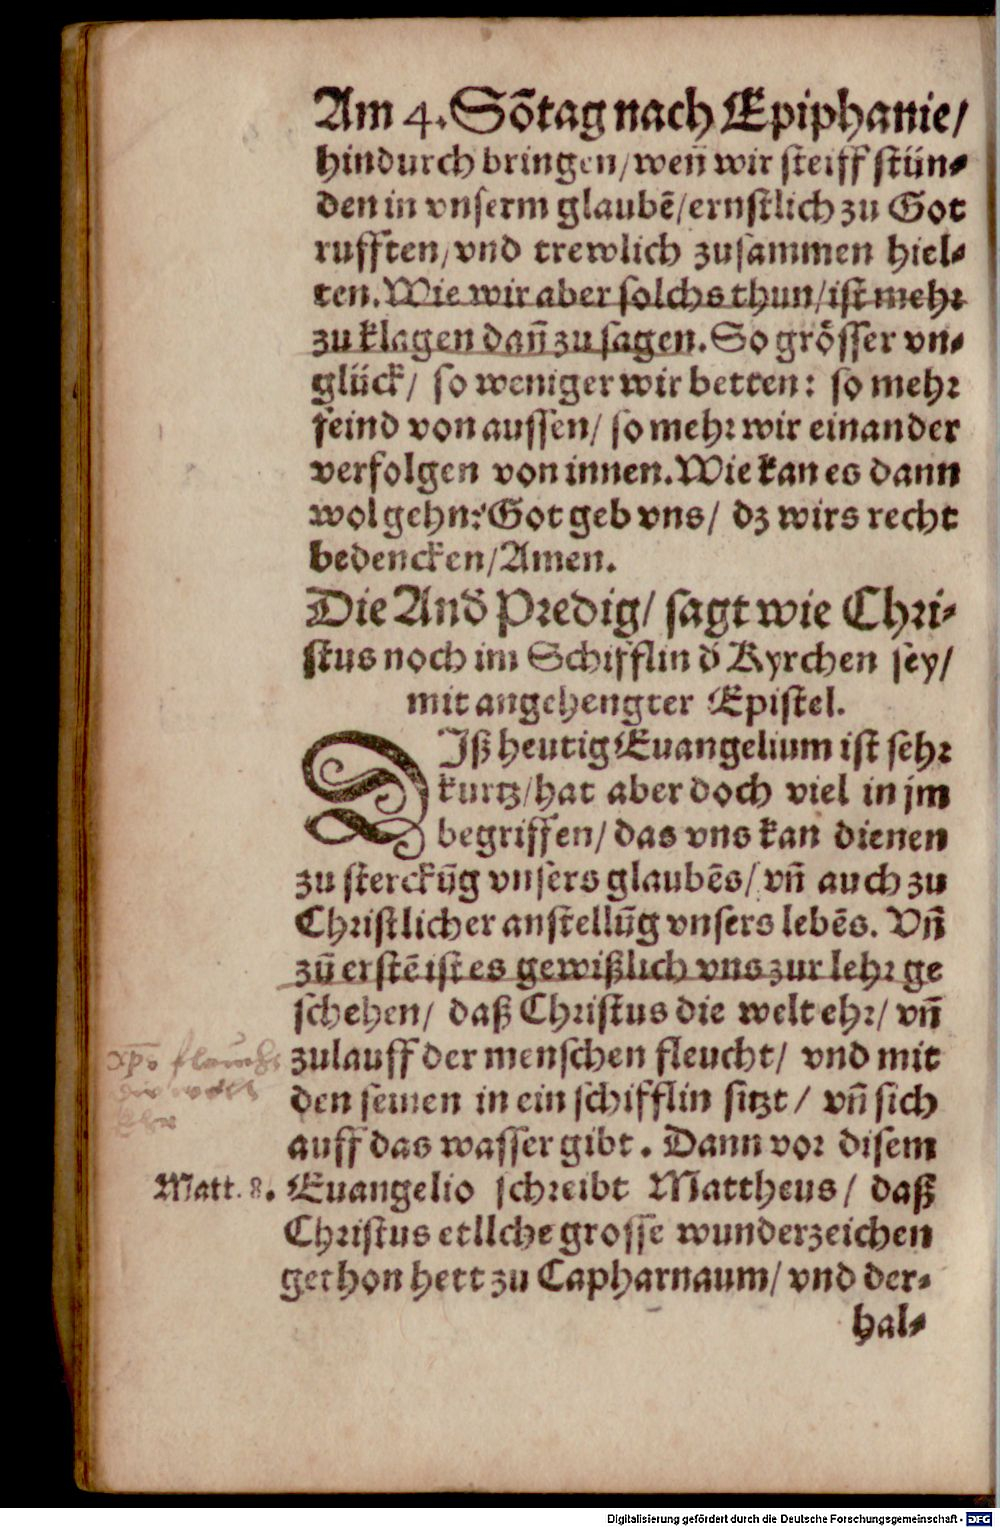 Am 4. Sõtag nach Epiphanie/
hindurch bringen/ weñ wir steiff stün⸗
den in vnserm glaubẽ/ ernstlich zu Got
rufften/ vnd trewlich zusammen hiel⸗
ten. Wie wir aber solchs thun/ ist mehr
zu klagen dañ zu sagen. So grösser vn⸗
glück/ so weniger wir betten: so mehr
feind von aussen/ so mehr wir einander
verfolgen von innen. Wie kan es dann
wol gehn? Got geb vns/ dz wirs recht
bedencken/ Amen.
Die And̃ Predig/ sagt wie Chri⸗
stus noch im Schifflin d̃ Kyrchen sey/
mit angehengter Epistel.
DIß heutig Euangelium ist sehr
kurtz/ hat aber doch viel in jm
begriffen/ das vns kan dienen
zu sterckũg vnsers glaubẽs/ vñ auch zu
Christlicher anstellũg vnsers lebẽs. Vñ
zũ erstẽ ist es gewißlich vns zur lehr ge
schehen/ daß Christus die welt ehr/ vñ
zulauff der menschen fleucht/ vnd mit
den seinen in ein schifflin sitzt/ vñ sich
auff das wasser gibt. Dann vor disem
Matt. 8. Euangelio schreibt Mattheus/ daß
Christus etllche grosse wunderzeichen
gethon hett zu Capharnaum/ vnd der⸗
hal⸗
Digitalisierung gefördert durch die Deutsche Forschungsgemeinschaft - DFG